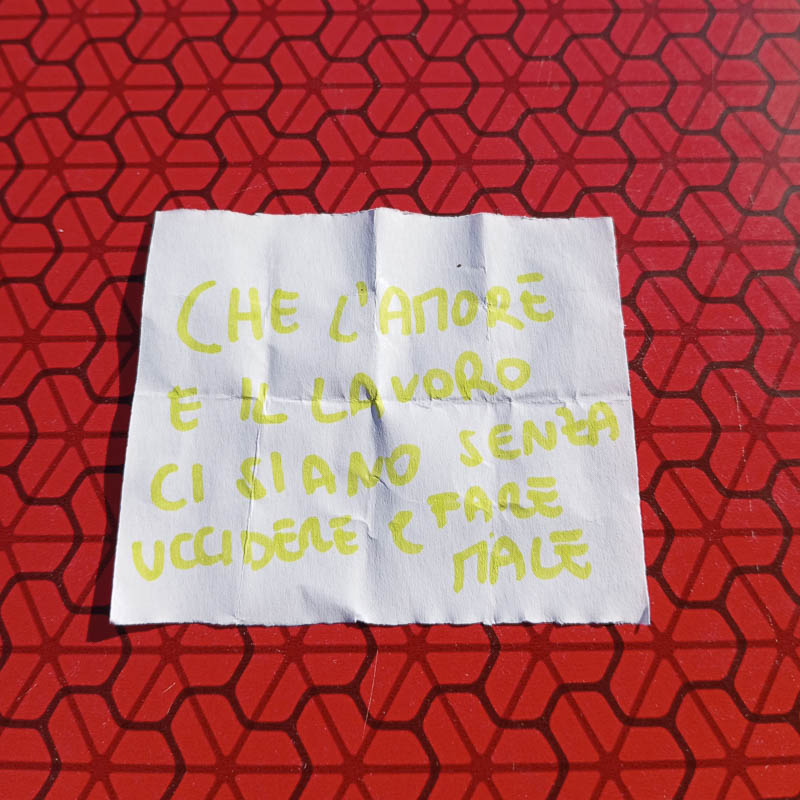 CHE L'AMORE
E IL LAVORO
CI SIANO SENZA
UCCIDERE E FARE
MALE